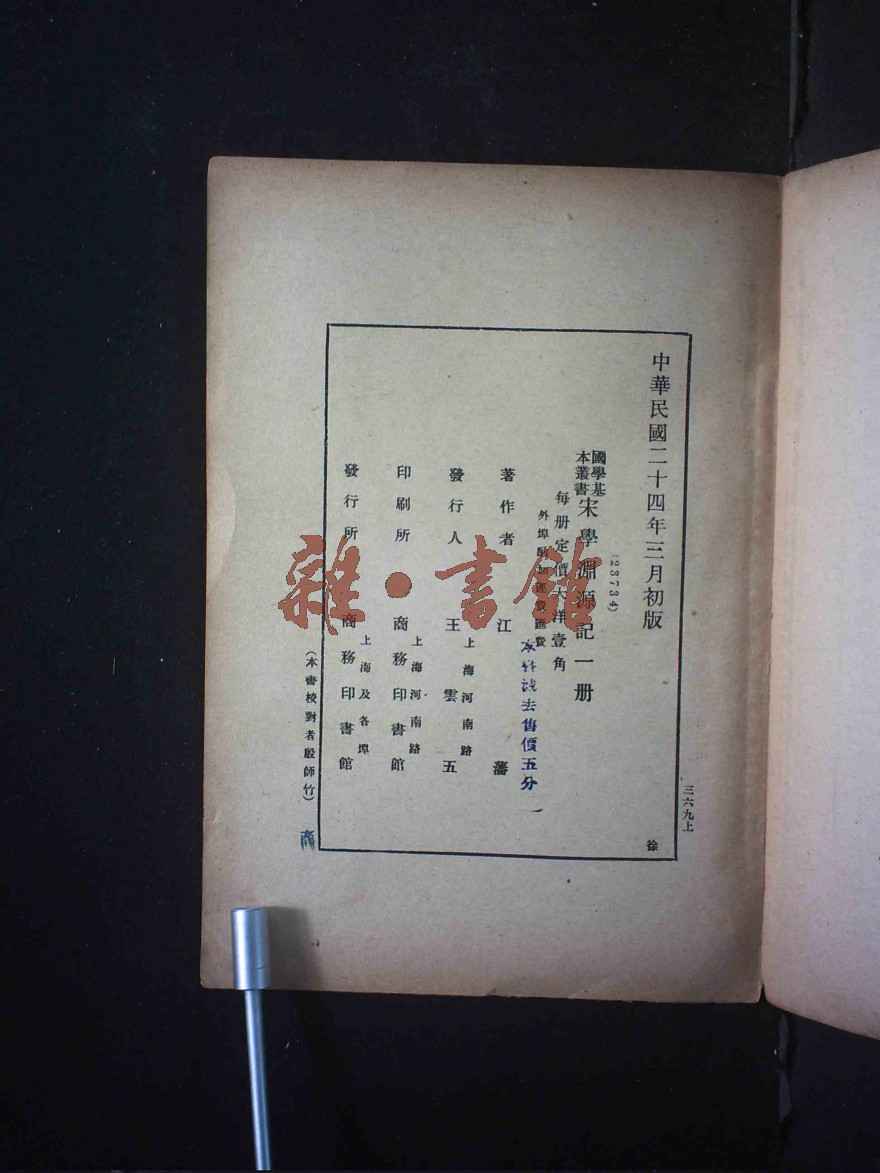 中華民國二十四年三月初版
(23734)
國學基
本叢書
宋學淵源記一册
每册定價大洋壹角
外埠酌加運費匯費
本書減去售價五分
著作者 江藩
上海河南路
發行人 王雲五
上海河南路
印刷所 商務印書館
上海及各埠
發行所 商務印書館
(本書校對者殷師竹)
三六九上
徐
雜·書館